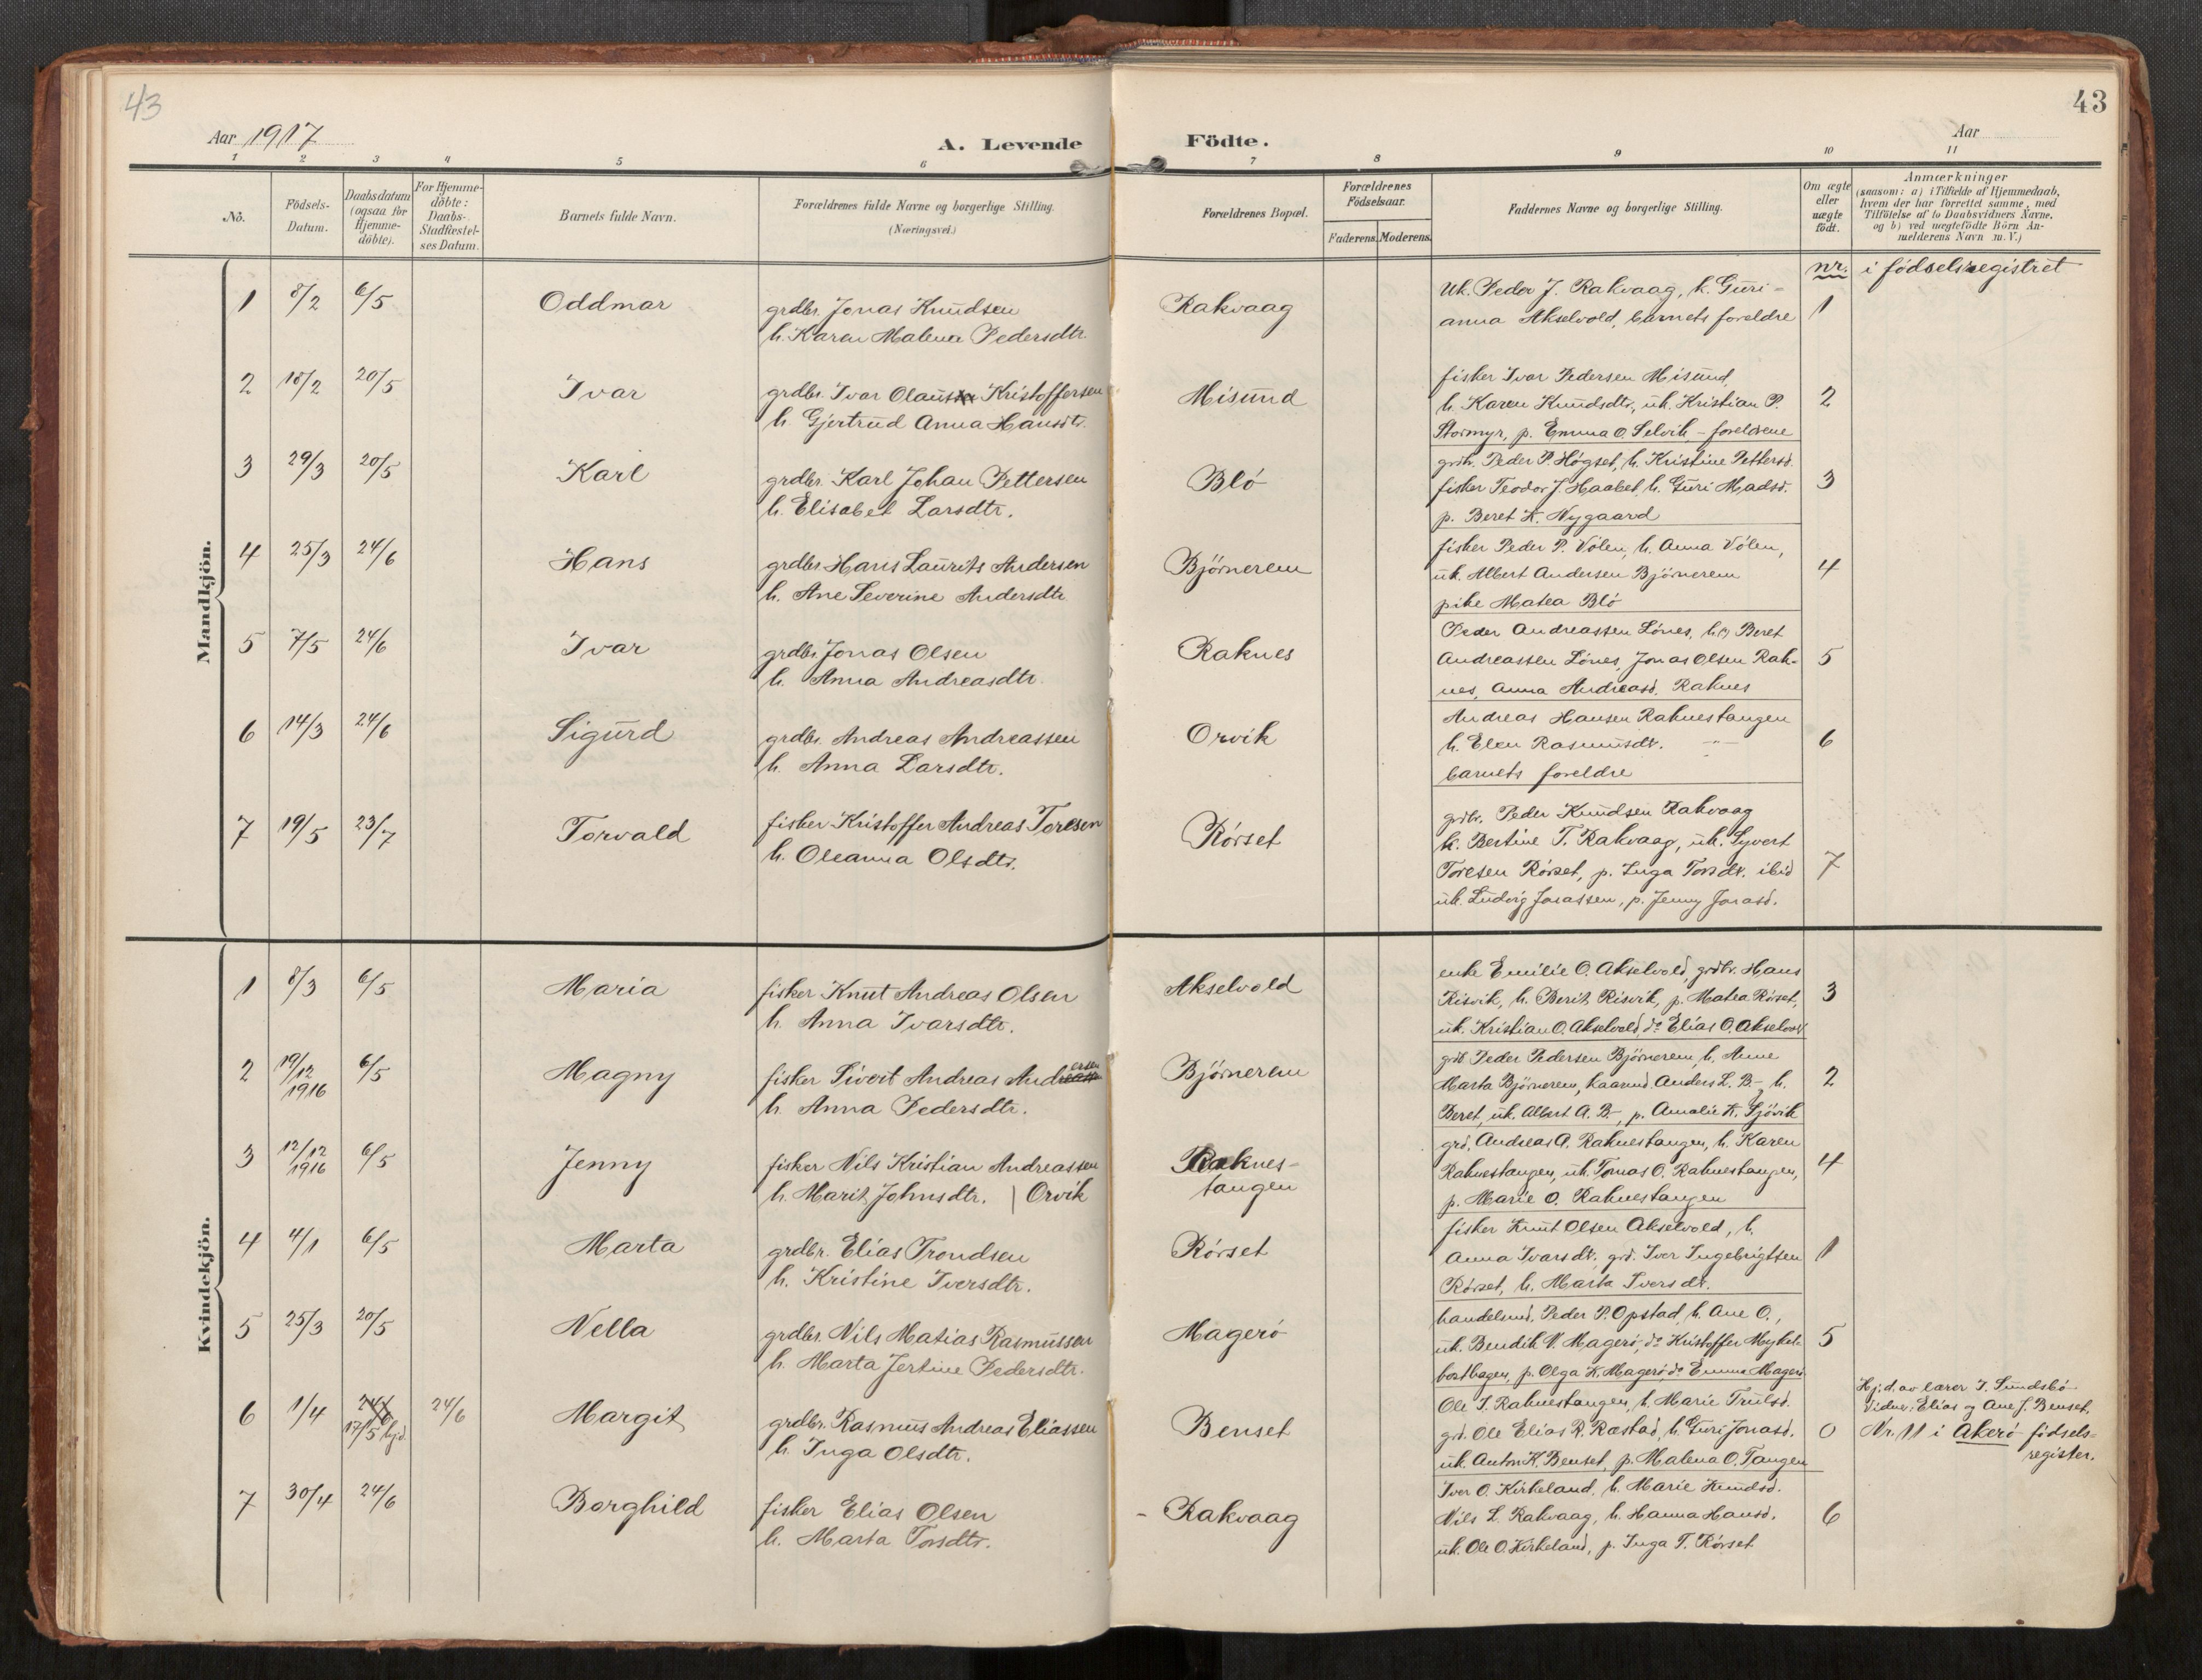 43
43
Aar 1917
A. Levende Födte.
Aar
1 2 3 4 5 6 7 8 9 10 11
Nö.
Födsels-Datum.
Daabsdatum (ogsaa for Hjemme-döbte).
For Hjemme-döbte: Daabs-Stadfæstel-ses Datum.
Barnets fulde Navn.
Forældrenes fulde Navne og borgerlige Stilling. (Næringsvei.)
Forældrenes Bopæl.
Forældrenes Födselsaar.
Faderens. Moderens.
Faddernes Navne og borgerlige Stilling.
Om ægte eller uægte födt.
Anmærkninger
(saasom: a) i Tilfælde af Hjemmedaab,
hvem der har forrettet samme, med
Tilföielse af to Daabsvidners Navne.
og b) ved uægtefödte Börn An-
melderens Navn m. V.)
nr. i fødselsregistret
Mandkjön.
1 8/2 6/5 Oddmar
grdbr. Jonas Knudsen
h. Karen Malena Pedersdtr.
Rakvaag
Uk. Peder J. Rakvaag, h. Guri-
anna Akselvold, barnets foreldre
1
2 18/2 20/5 Ivar
grdbr. Ivar Olaus Kristoffersen
h. Gjertrud Anna Hansdtr.
Misund
fisker Ivar Pedersen Misund,
h. Karen Knudsdtr., uk. Kristian P.
Stormyr, p. Emma O. Selvik - foreldrene
2
3 29/3 20/5 Karl
grdbr. Karl Johan Pettersen
h. Elisabet Larsdtr.
Blö
grdbr. Peder P. Høgset, h. Kristine Pettersd.
fisker Teodor J. Haabet, h. Guri Madsd.
p. Beret K. Nygaard
3
4 25/3 24/6 Hans
grdbr. Hans Laurits Andersen
h. Ane Severine Andersdtr.
Björnerem
fisker Peder P. Vølen, h. Anna Vølen,
uk. Albert Andersen Björnerem
pike Matea Blö
4
5 7/5 24/6 Ivar
grdbr. Jonas Olsen
h. Anna Andreasdtr.
Raknes
Peder Andreassen Lönes, h. Beret
Andreassen Lönes, Jonas Olsen Rak-
nes, Anna Andreasd. Raknes
5
6 14/3 24/6 Sigurd
grdbr. Andreas Andreassen
h. Anna Larsdtr.
Orvik
Andreas Hansen Raknestangen
h. Elen Rasmusdtr. -"-
barnets foreldre
6
7 19/5 23/7 Torvald
fisker Kristoffer Andreas Toresen
h. Oleanna Olsdtr.
Rörset
grdbr. Peder Knudsen Rakvaag
h. Bertine T. Rakvaag, uk. Syvert
Toresen Rörset, p. Inga Torsdtr. ibid
uk. Ludvig Jonassen, p. Jenny Jonasd.
7
Kvindekjön.
1 8/3 6/5 Maria
fisker Knut Andreas Olsen
h. Anna Ivarsdtr.
Akselvold
enke Emilie O. Akselvold, grdbr. Hans
Risvik, h. Berit Risvik, p. Matea Rörset,
uk. Kristian O. Akselvold, do Elias O. Akselvold
3
2 19/12 1916 6/5 Magny
fisker Sivert Andreas Andersen
h. Anna Pedersdtr.
Björnerem
grdb. Peder Pedersen Björnerem, h. Anne
Marta Björnerem, kaarmd. Anders L. B-, h.
Beret, uk. Albert A. B-, p. Amalie K. Sjövik
2
3 12/12 1916 6/5 Jenny
fisker Nils Kristian Andreassen
h. Marit Johnsdtr. | Orvik
Raknes-
tangen
grd. Andreas A. Raknestangen, h. Karen
Raknestangen, uk. Tomas O. Raknestangen,
p. Marie O. Raknestangen
4
4 4/1 6/5 Marta
grdbr. Elias Trondsen
h. Kristine Iversdtr.
Rörset
fisker Knut Olsen Akselvold, h.
Anna Ivarsdtr., grd. Iver Ingebrigtsen
Rörset, h. Marta Iversdtr.
1
5 25/3 20/5 Nella
grdbr. Nils Matias Rasmussen
h. Marta Jertine Pedersdtr.
Magerö
handelsmd. Peder P. Opstad, h. Ane O.,
uk. Bendik N. Magerö, do Kristoffer Mykle-
bosthagen, p. Olga K. Magerö, do Emma Magerö
5
6 1/4 24/6 17/5 hjd. 24/6 Margit
grdbr. Rasmus Andreas Eliassen
h. Inga Olsdtr.
Benset
Ole T. Raknestangen, h. Marie Trulsd.
grd. Ole Elias R. Ræstad, h. Guri Jonasd.
uk. Anton K. Benset, p. Malena O. Tangen
0
Hj.d. av lærer I. Sundsbö
Vidner: Elias og Ane J. Benset.
Nr. 11 i Akerö födsels-
register.
7 30/4 24/6 Borghild
fisker Elias Olsen
h. Marta Torsdtr.
- Rakvaag
Iver O. Kirkeland, h. Marie Knudsd.
Nils L. Rakvaag, h. Hanna Hansd.
uk. Ole O. Kirkeland, p. Inga T. Rörset
6